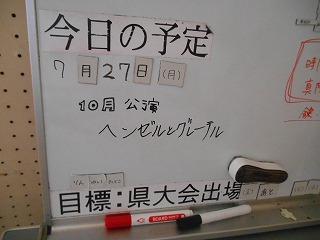 今日の予定
7月27日(月)
10月 公演
ヘンゼルとグレーテル
目標:県大会出場
あと
BOARD